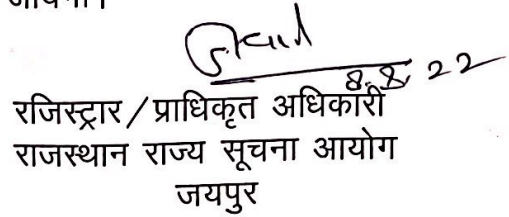 8.8.22
रजिस्ट्रार / प्राधिकृत अधिकारी
राजस्थान राज्य सूचना आयोग
जयपुर